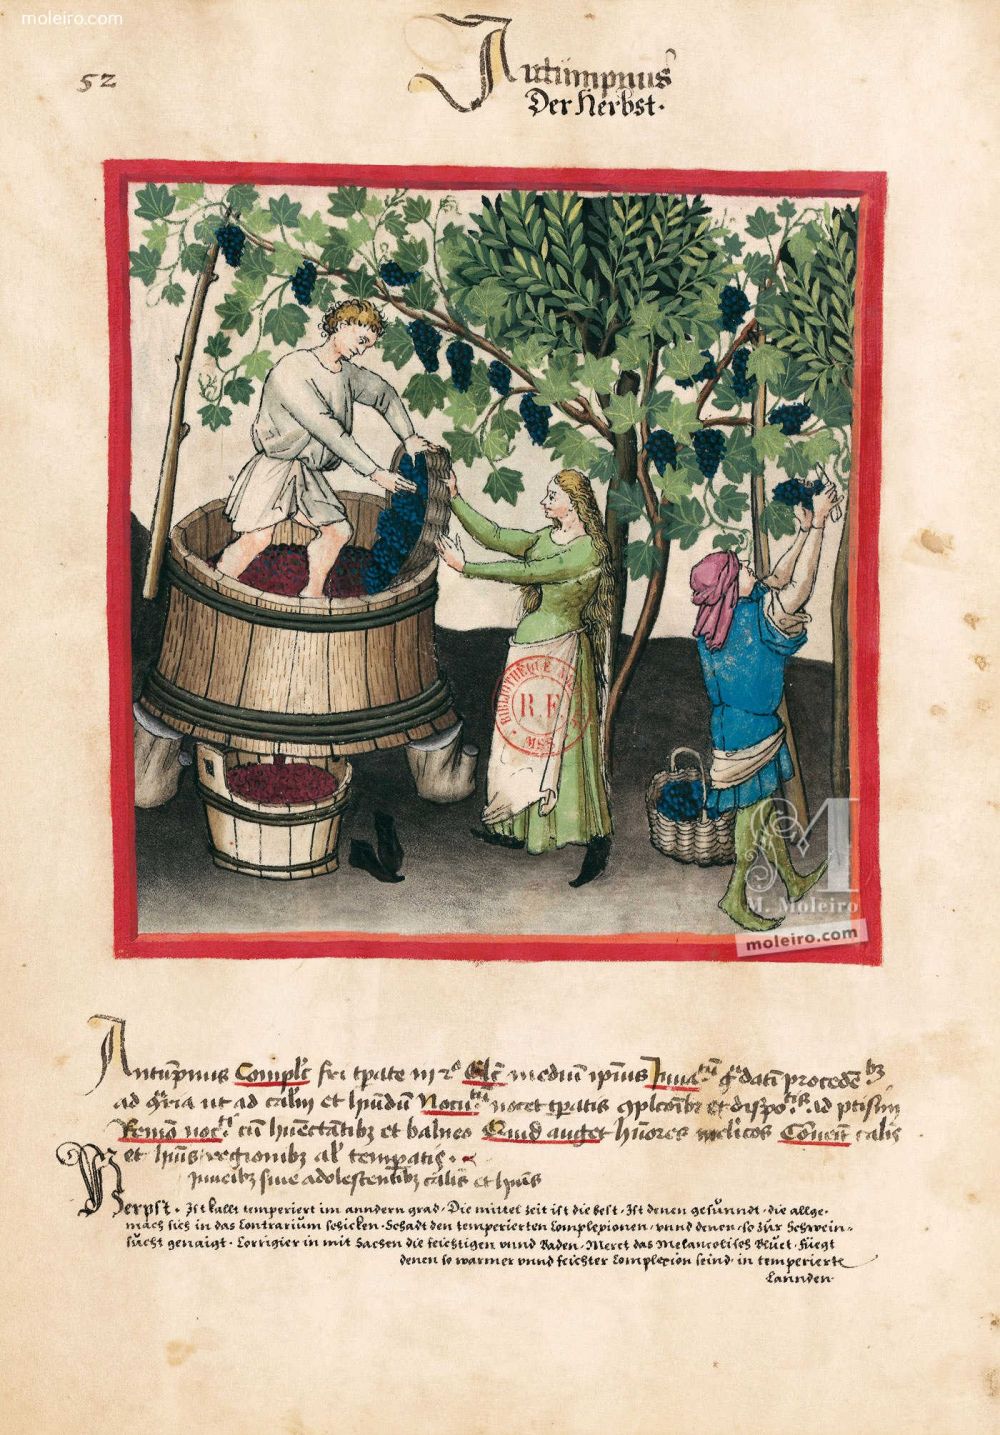 moleiro.com
52
Autumpnus
Der Herbst.
BIBLIOTHEQUE
R. F.
MSS
M
M. Moleiro
moleiro.com
Autūpnus Complō fri tpate in 2º Elcō mediū ipīus Iuua
ad et hūdū Nocu nocet et ad ptisim
Remō noc cū hūectantibȝ et balneo Quid auget hūores melīcos Cōuenit calis
et hūis regionibȝ temperatis.
Iuueibȝ siue adolescentibȝ calis et hūis
Herpst. Ist kallt temperiert im anndern grad. Die mittel zeit ist die best. Ist denen gesunndt. die allge-
mach sich in das Contrarium schicken. Schadt den temperierten Complexionen, vnnd denen so zur Schwein-
sucht genaigt. Corrigier in mit Sachen die feichtigen vnnd Baden. Meret das Melancolisch Bluet. fuegt
denen so warmer vnnd feichter Complexion seind. in temperierte
Lannden.